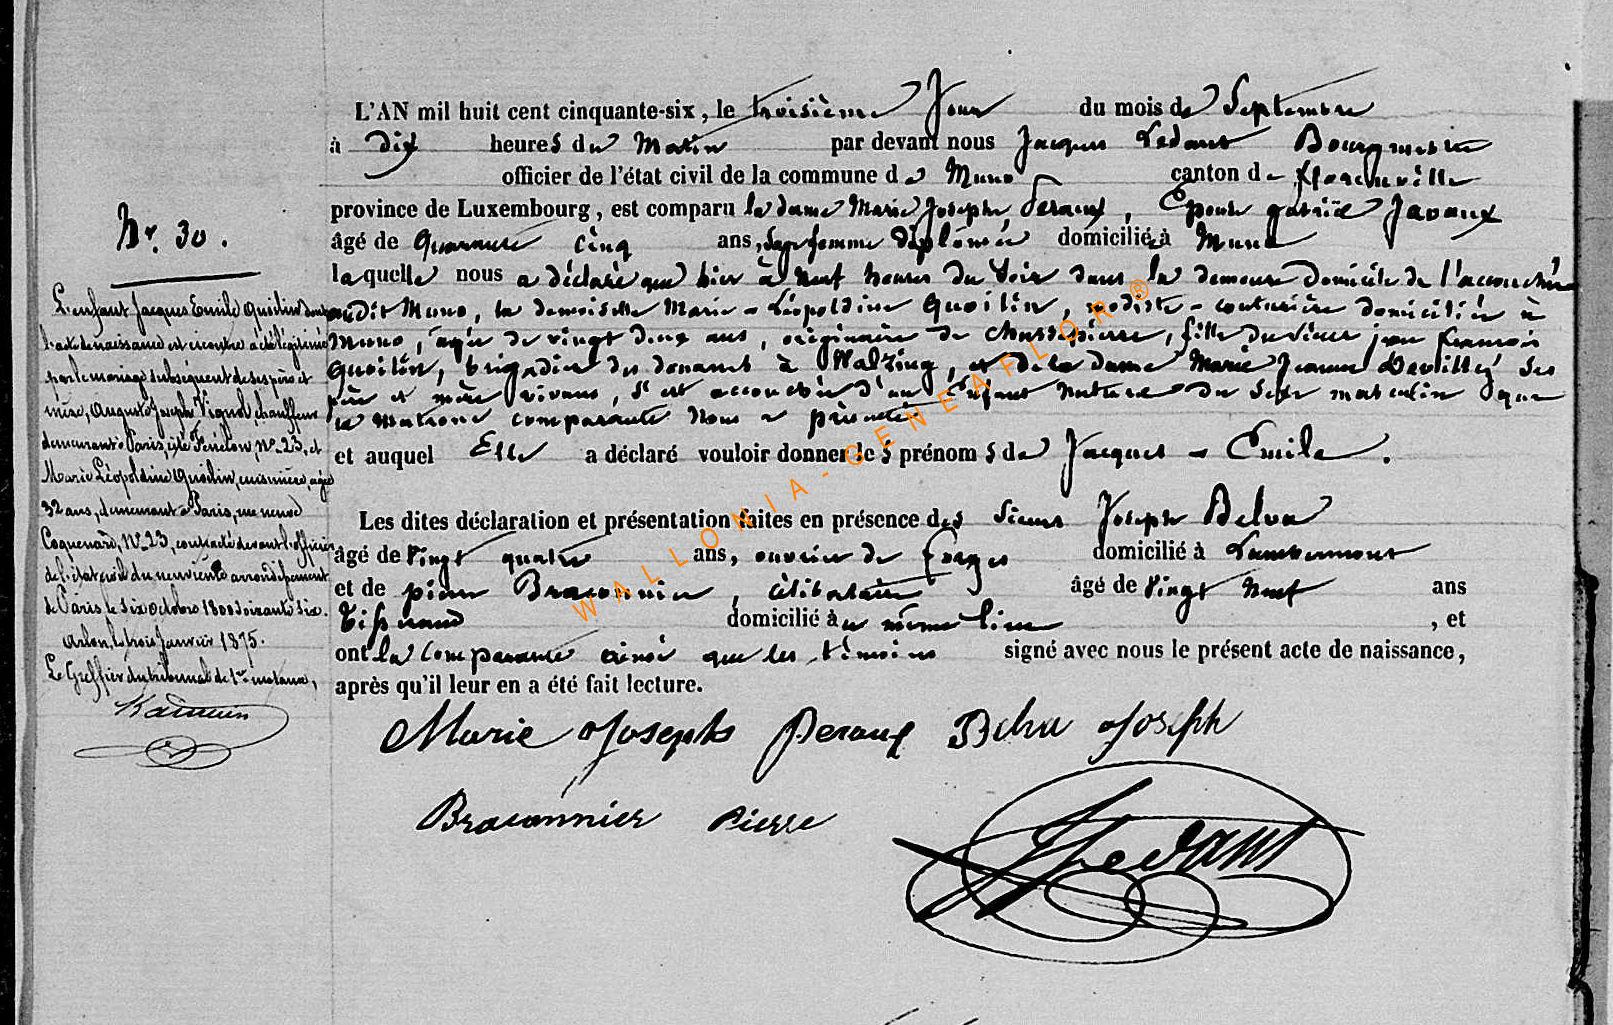 L'AN mil huit cent cinquante-six, le troisième Jour du mois de Septembre
à dix heures du Matin par devant nous Jacques Ledant Bourgmestre
officier de l'état civil de la commune de Muno canton de Florenville
province de Luxembourg, est comparu la dame Marie Josephe Peraux, Epouse gabriël Javaux
âgé de Quarante cinq ans, Sage femme diplômée domiciliée à Muno
laquelle nous a déclaré que hier à neuf heures du Soir dans la demeure Domicile de l'accouchée
audit Muno, la demoiselle Marie-Léopoldine Quoilin, modiste-couturière domiciliée à
Muno, âgée de vingt deux ans, originaire de Chassepierre, fille du sieur jean françois
Quoilin, brigadier des douanes à Walzing, et de la dame Marie Jeanne Devillez Ses
père et mère vivans, S'est accouchée d'un Enfant naturel du Sexe masculin que
la Matrone comparante Nous a présenté
et auquel Elle a déclaré vouloir donner les prénoms de Jacques-Emile.
Les dites déclaration et présentation faites en présence des Sieurs Joseph Belva
âgé de Vingt quatre ans, ouvrier de Forges domicilié à Lambermont
et de pierre Braconnier, célibataire âgé de Vingt Neuf ans
Tisserand domicilié au même lieu, et
ont la Comparante ainsi que les témoins signé avec nous le présent acte de naissance,
après qu'il leur en a été fait lecture.
Marie Josephe Peraux Belva Joseph
Braconnier Pierre
JLedant
Nr. 30.
L'enfant Jacques Emile Quoilin dont
l'acte de naissance est ci-contre a été légitimé
par le mariage subséquent de ses père et
mère, Auguste Joseph Vignol, chauffeur
demeurant à Paris, cité Fénelon, No 23, et
Marie Léopoldine Quoilin, cuisinière, âgée
32 ans, demeurant à Paris, rue neuve
Coquenard, No 23, contracté devant l'officier
de l'état civil du neuvième arrondissement
de Paris le six octobre 1800 soixante six.
Arlon, le trois Janvier 1875.
Le Greffier du tribunal de 1re instance,
WALLONIA-GENEAFLOR®